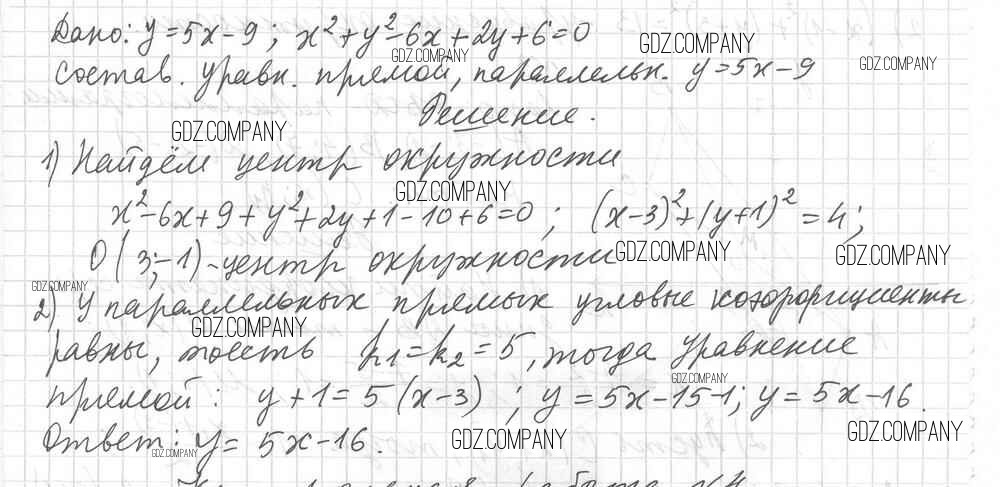 Дано: y=5x-9; x²+y²-6x+2y+6=0
состав. уравн. прямой, параллельн. y=5x-9
Решение.
1) Найдём центр окружности
x²-6x+9+y²+2y+1-10+6=0; (x-3)²+(y+1)²=4;
O(3;-1)-центр окружности
2) У параллельных прямых угловые коэффициенты
равны, тоесть k₁=k₂=5, тогда уравнение
прямой: y+1=5(x-3); y=5x-15-1; y=5x-16.
Ответ: y=5x-16.
GDZ.COMPANY
GDZ.COMPANY
GDZ.COMPANY
GDZ.COMPANY
GDZ.COMPANY
GDZ.COMPANY
GDZ.COMPANY
GDZ.COMPANY
GDZ.COMPANY
GDZ.COMPANY
GDZ.COMPANY
GDZ.COMPANY
GDZ.COMPANY